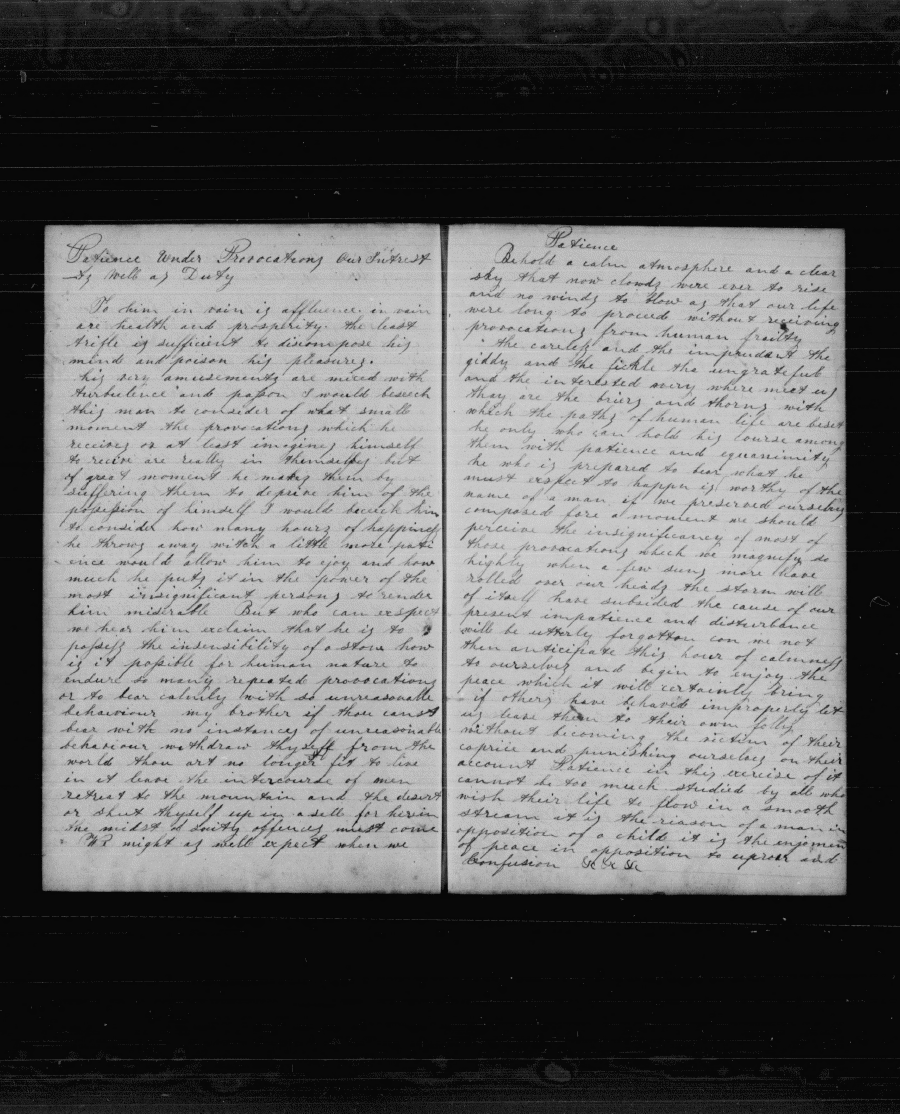 Patience Under Provocations Our Intrest
As Well as Duty
To him in vain is affluence in vain
are health and prosperity. the least
trifle is sufficient to discompose his
mind and poison his pleasures.
his very amusements are mixed with
turbulence and passon I would beseech
this man to consider of what small
moment the provocations which he
receives or at least imagines himself
to recive are really in themselves but
of great moment he makes them by
suffering them to deprive him of the
possession of himself I would beceech him
to consider how many hours of happiness
he throws away witch a little more pati
ence would allow him to ejoy and how
much he puts it in the power of the
most irisignificant persons to render
him misirable But who can exspect
we hear him exclaim that he is to
possess the insensibility of a stone how
is it possible for human nature to
endure so many repeated provocations
or to bear calmly with so unreasonable
behaviour my brother if thou canst
bear with no instances of unreasonable
behaviour withdraw thyself from the
world thou art no longer fit to live
in it leave the intercourse of men
retreat to the mountain and the desert
or shut thyself up in a sell for herein
the midst of soity offences must come
We might as well expect when we
Patience
Behold a calm atmosphere and a clear
sky that now clouds were ever to rise
and no winds to blow as that our life
were long to proceed without receiving
provocations from human frailty
the careles and the imprudant the
giddy and the fickle the ungratefull
and the interested every where meet us
they are the briers and thorns with
which the paths of human life are beset
he only who can hold his course among
them with patience and equanimity
he who is prepared to bear what he
must exspect to happen is worthy of the
name of a man if we preserved ourselves
composed fore a moment we should
perceive the insignificancy of most of
those provocations which we magnify so
highly when a few suns more have
rolled over our heads the storm will
of itself have subsided the cause of our
present impatience and disturbance
will be utterly forgotton can we not
then anticipate this hour of calmness
to ourselves and begin to enjoy the
peace which it will certainly bring
if others have behaved improperly let
us leave them to their own folly
without becoming the victim of their
caprice and punishing ourselves on their
account Patience in this exercise of it
cannot be too much studied by all who
wish their life to flow in a smooth
stream it is the reason of a man in
opposition of a child it is the enjoymen
of peace in opposition to uproar and
Confusion